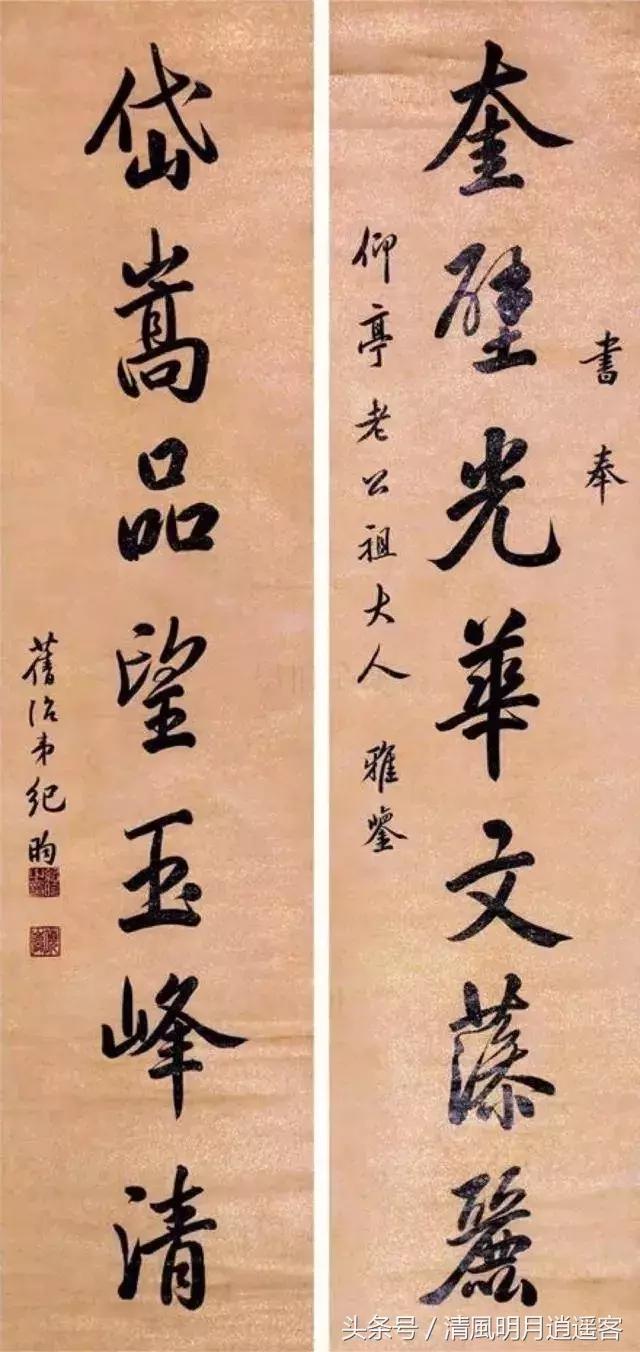 書奉
奎壁光華文藻麗
仰亭老公祖大人 雅鑒
岱嵩品望玉峰清
舊治弟紀昀
头条号 / 清風明月逍遥客